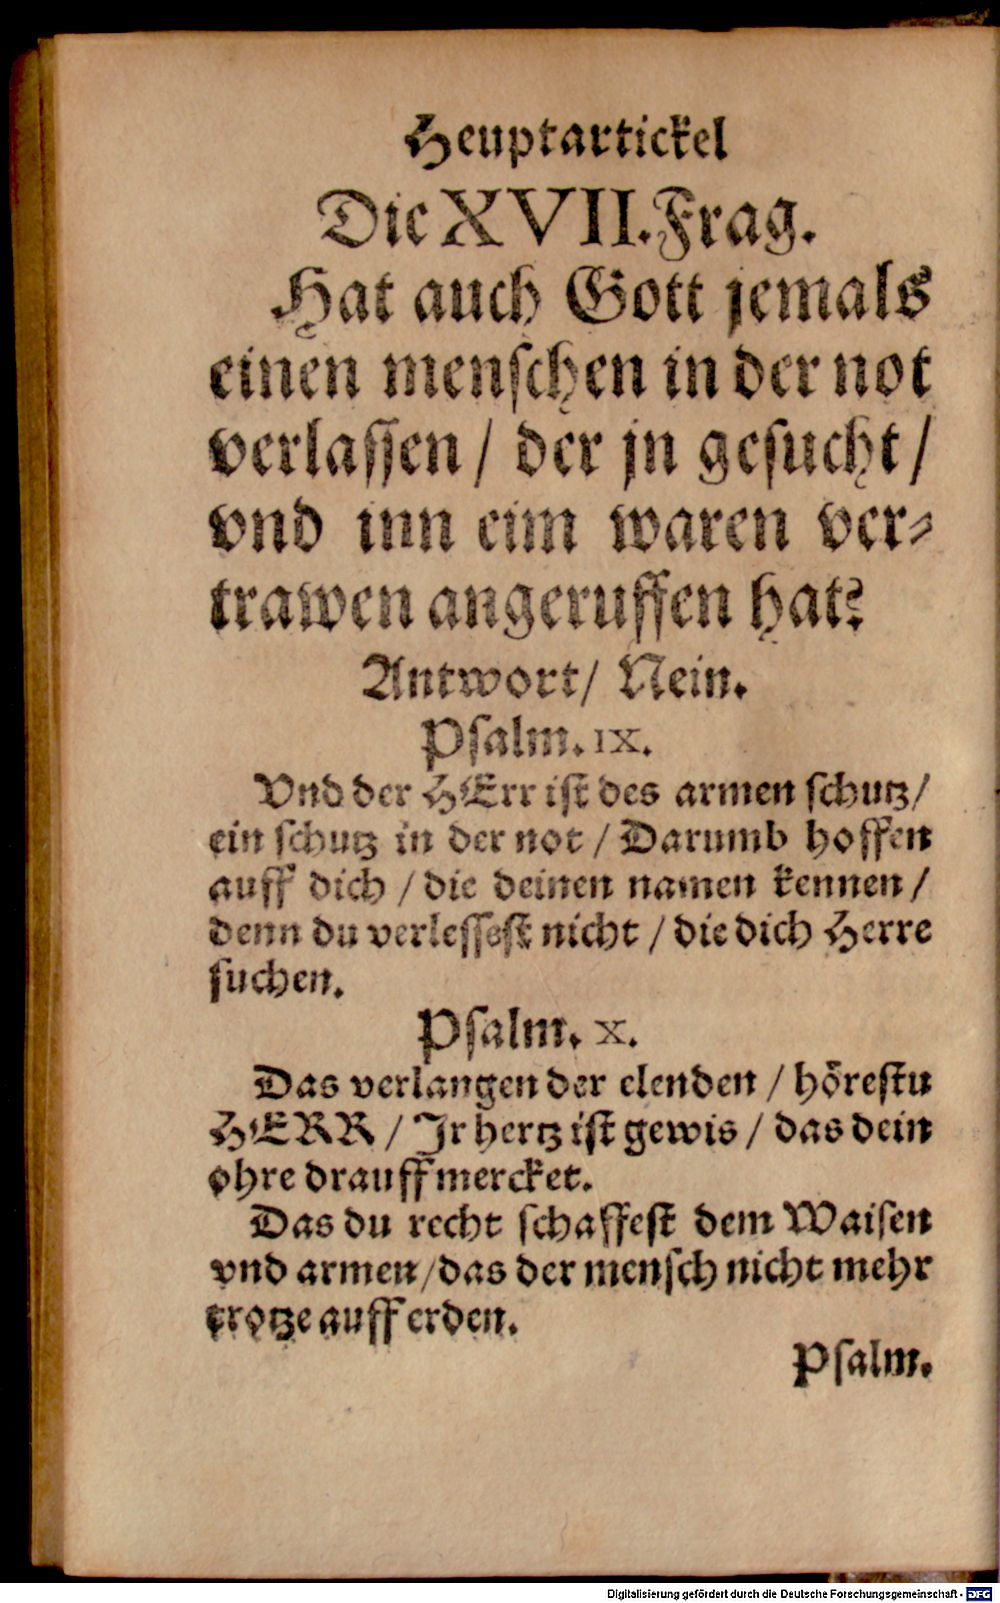 Heuptartickel
Die XVII. Frag.
Hat auch Gott jemals
einen menschen in der not
verlassen / der jn gesucht /
vnd inn eim waren ver-
trawen angeruffen hat?
Antwort / Nein.
Psalm. IX.
Vnd der HErr ist des armen schutz /
ein schutz in der not / Darumb hoffen
auff dich / die deinen namen kennen /
denn du verlessest nicht / die dich Herre
suchen.
Psalm. X.
Das verlangen der elenden / hörestu
HERR / Jr hertz ist gewis / das dein
ohre drauff mercket.
Das du recht schaffest dem Waisen
vnd armen / das der mensch nicht mehr
trotze auff erden.
Psalm.
Digitalisierung gefördert durch die Deutsche Forschungsgemeinschaft - DFG